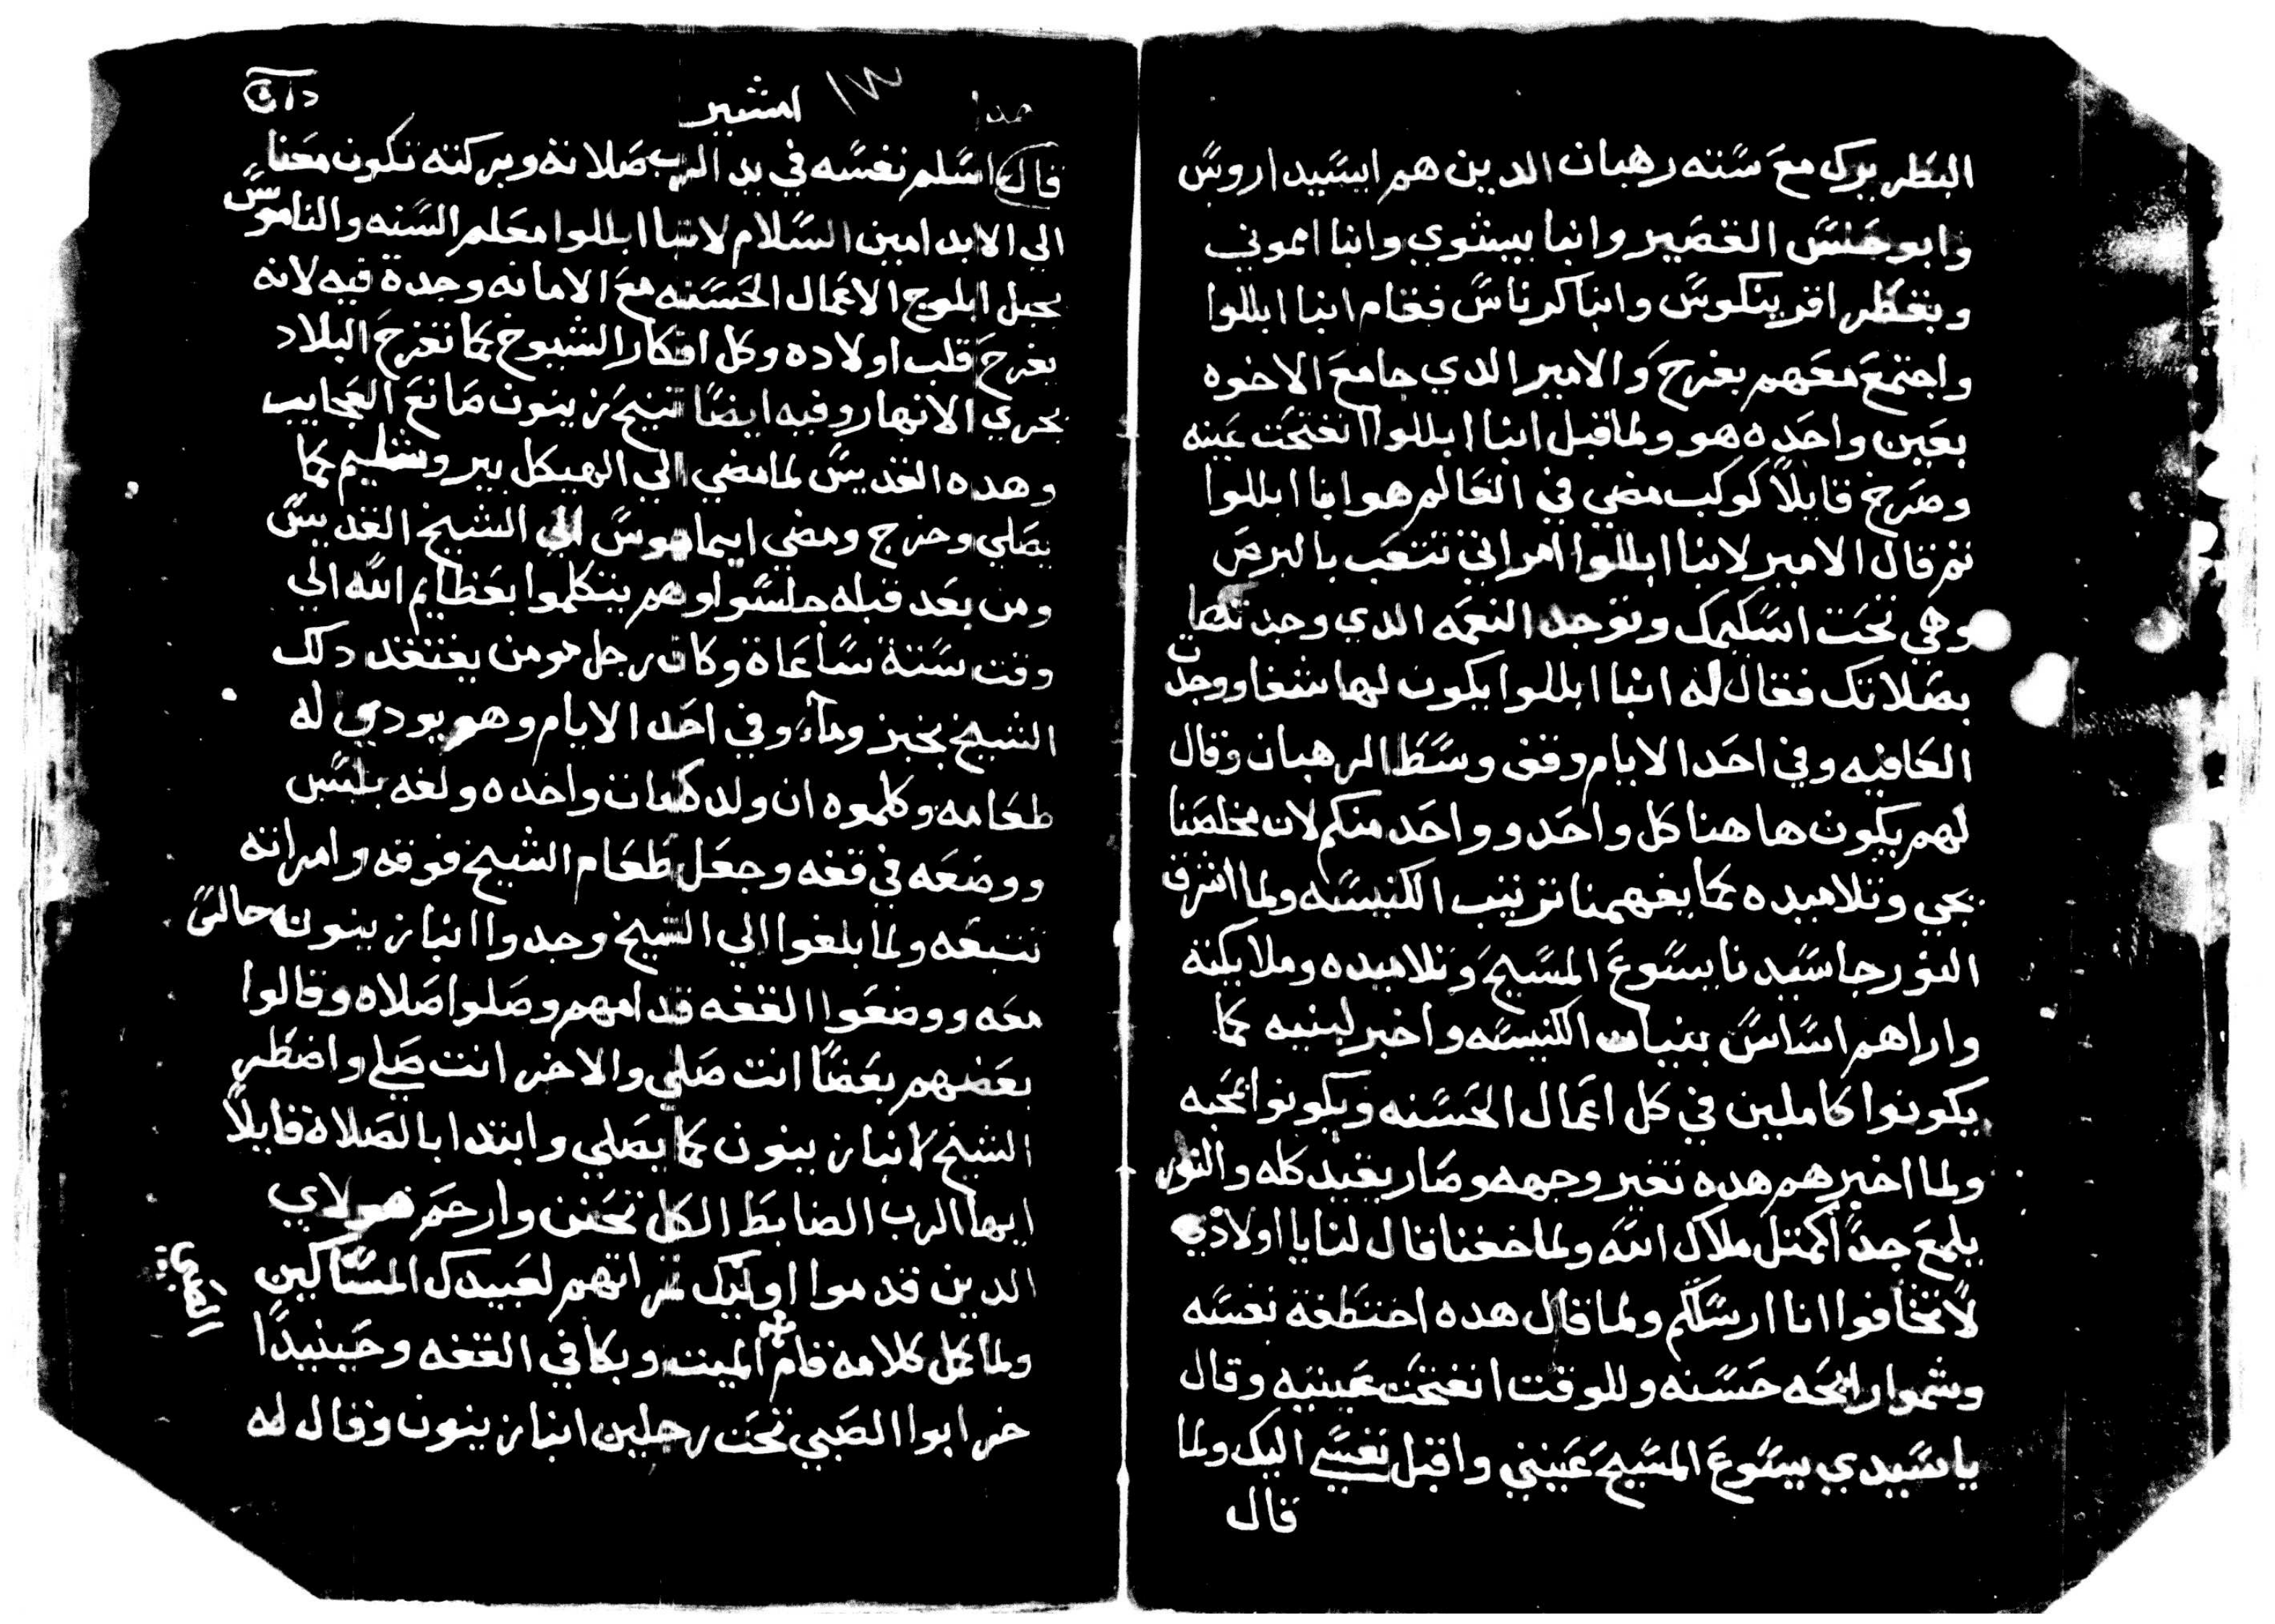 البطريرك مع سته رهبان الدين هم ابسيداروس
وابو حلس القصير وانبا بيستوي وانبا اموني
وبقطر اقرينكوس وانبا كرناس فقام انبا ابللوا
واجتمع معهم بفرح والامير الدي جا مع الاخوه
بعين واحده هو ولما قبل انبا ابللوا انفتحت عينه
وصرخ قايلاً كوكب مضي في العالم هو انبا ابللوا
تم قال الامير لانبا ابللوا امراتي تتعب بالبرص
وهي تحت اسكيمك وتوجد النعمه الدي وجدتها
بصلاتك فقال له انبا ابللوا يكون لها شفا ووجدت
العافيه وفي احد الايام وقف وسط الرهبان وقال
لهم يكون هاهنا كل واحد وواحد منكم لان مخلصنا
يجي وتلاميده كما يفهمنا ترتيب الكنيسه ولما اشرق
النور جا سيدنا يسوع المسيح وتلاميده وملايكته
واراهم اساس بنيان الكنيسه واخبر لبنيه كما
يكونوا كاملين في كل اعمال الحسنه ويكونوا بمحبه
ولما اخبرهم هده تغير وجهه وصار يقيد كله والنور
يلمع جداً كمتل ملاك الله ولما خفنا قال لنا يا اولادي
لا تخافوا انا ارسلكم ولما قال هده اختطفة نفسه
وشموا رايحه حسنه وللوقت انفتحت عينيه وقال
يا سيدي يسوع المسيح عينني واقبل نفسي اليك ولما
قال
امشير
١٣
قال اسلم نفسه في يد الرب صلاته وبركته تكون معنا
الي الابد امين السلام لانبا ابللوا معلم السنه والناموس
بجبل ابلوج الاعمال الحسنه مع الامانه وجدة فيه لانه
يفرح قلب اولاده وكل افكار الشيوخ كما تفرح البلاد
بجري الانهار وفيه ايضاً تنيح زينون صانع العجايب
وهده القديس لما مضي الي الهيكل بيروشليم كما
يصلي وخرج ومضي ايماهوس الي الشيخ القديس
ومن بعد قبله جلسوا وهم يتكلموا بعظايم الله الي
وقت ستة ساعاة وكان رجل مومن يفتقد دلك
الشيخ بخبز وماء وفي احد الايام وهو يودي له
طعامه وكلموه ان ولد كان واخده ولفه بلبس
ووضعه في قفه وجعل طعام الشيخ فوقه وامراته
تتبعه ولما بلغوا الي الشيخ وجدوا انبا زينون جالس
معه ووضعوا القفه قدامهم وصلوا صلاه وقالوا
بعضهم بعضاً انت صلي والاخر انت صلي واضطر
الشيخ لانبا زينون كما يصلي وابتدا بالصلاة قايلاً
ايها الرب الضابط الكل تحنن وارحم هولاي
الدين قدموا اوليك تمراتهم لعبيدك المساكين
ولما كمل كلامه قام الميت وبكا في القفه وحينيداً
خر ابوا الصبي تحت رجلين انبا زينون وقال له